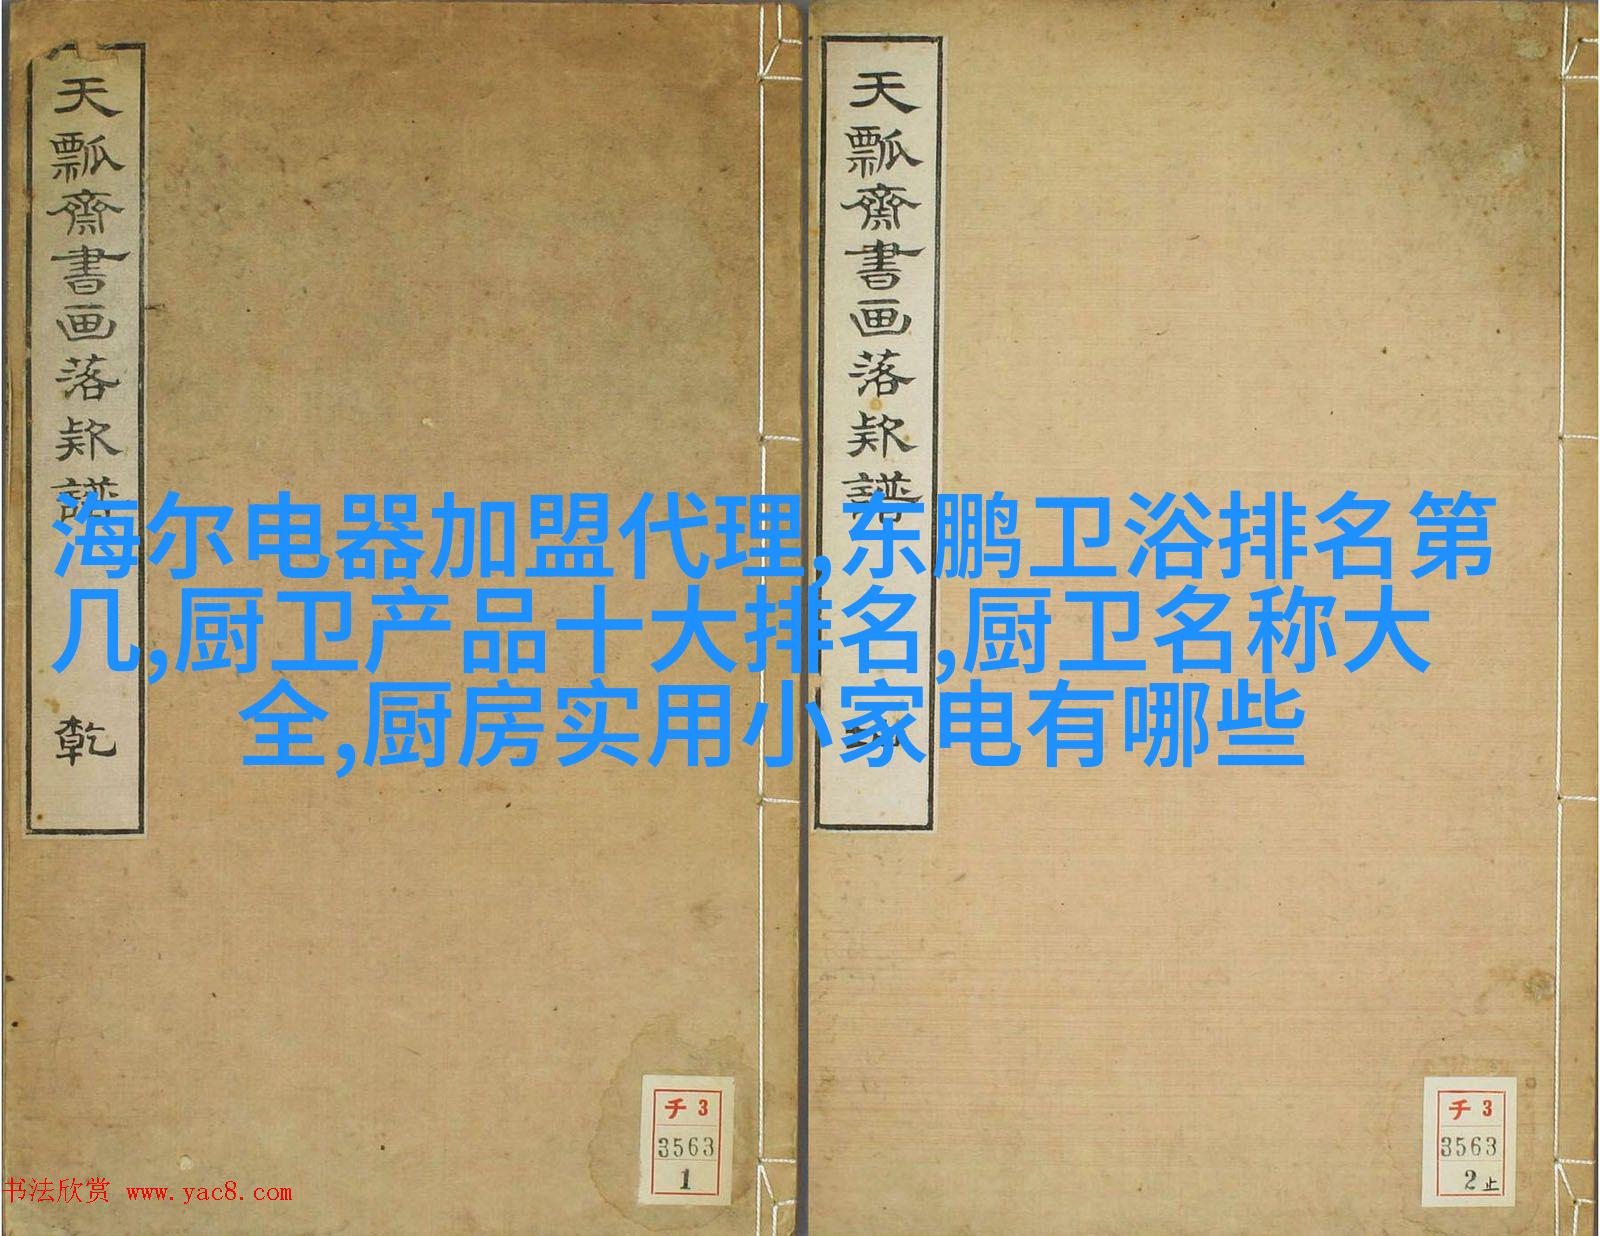 天瓢齋書画落欵譜
乾
天瓢齋書画落欵譜
海尔电器加盟代理,东鹏卫浴排名第
几,厨卫产品十大排名,厨卫名称大
全,厨房实用小家电有哪些
チ 3
3563
1
チ 3
3563
2止
书法欣赏 www.yac8.com